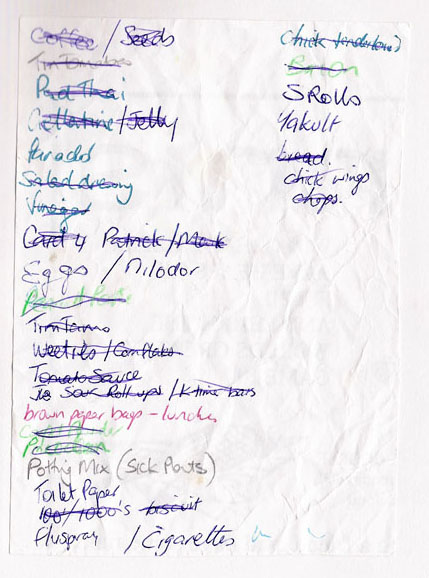 Coffee / Seeds
Tin Tomatoes
Pad Thai
Gellatine / Jelly
Panadol
Salad dressing
Vinegar
Card 4 Patrick / Mark
Eggs / Nilodor
Tim Tams
Weeties / Cornflakes
Tomato Sauce
Sour Roll ups / K-time bars
brown paper bags - lunches
Potting Mix (Sick Pants)
Toilet Paper
100's/1000's biscuit
Flyspray / Cigarettes
chick tenderloins
S Rolls
Yakult
bread.
chick wings
chops.